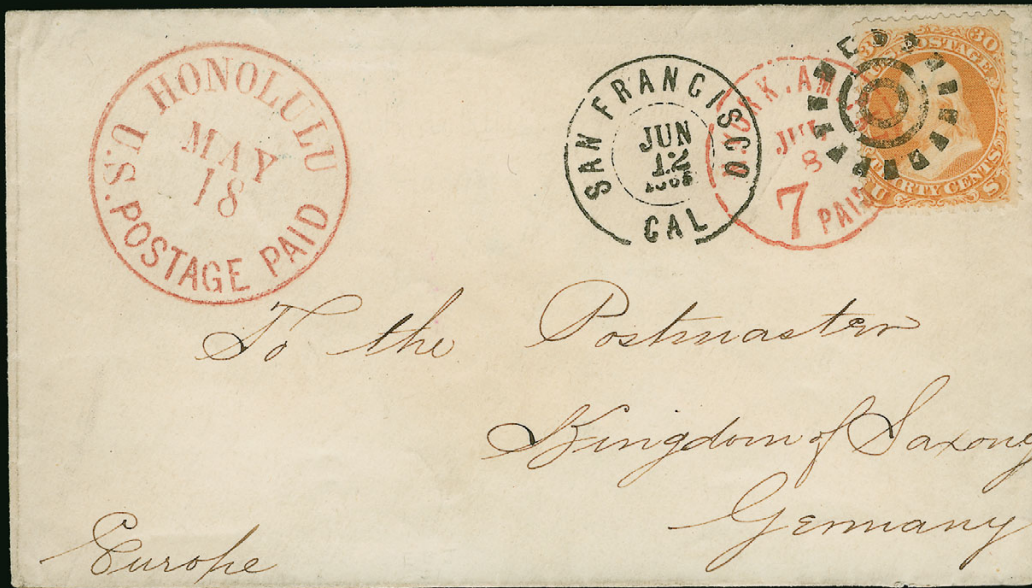 HONOLULU
MAY
18
U.S. POSTAGE PAID
SAN FRANCISCO
JUN
12
CAL
YORK. AM
8
7
PAID
30
POSTAGE
CENTS
U
S
To the Postmaster
Kingdom of Saxony
Germany
Europe